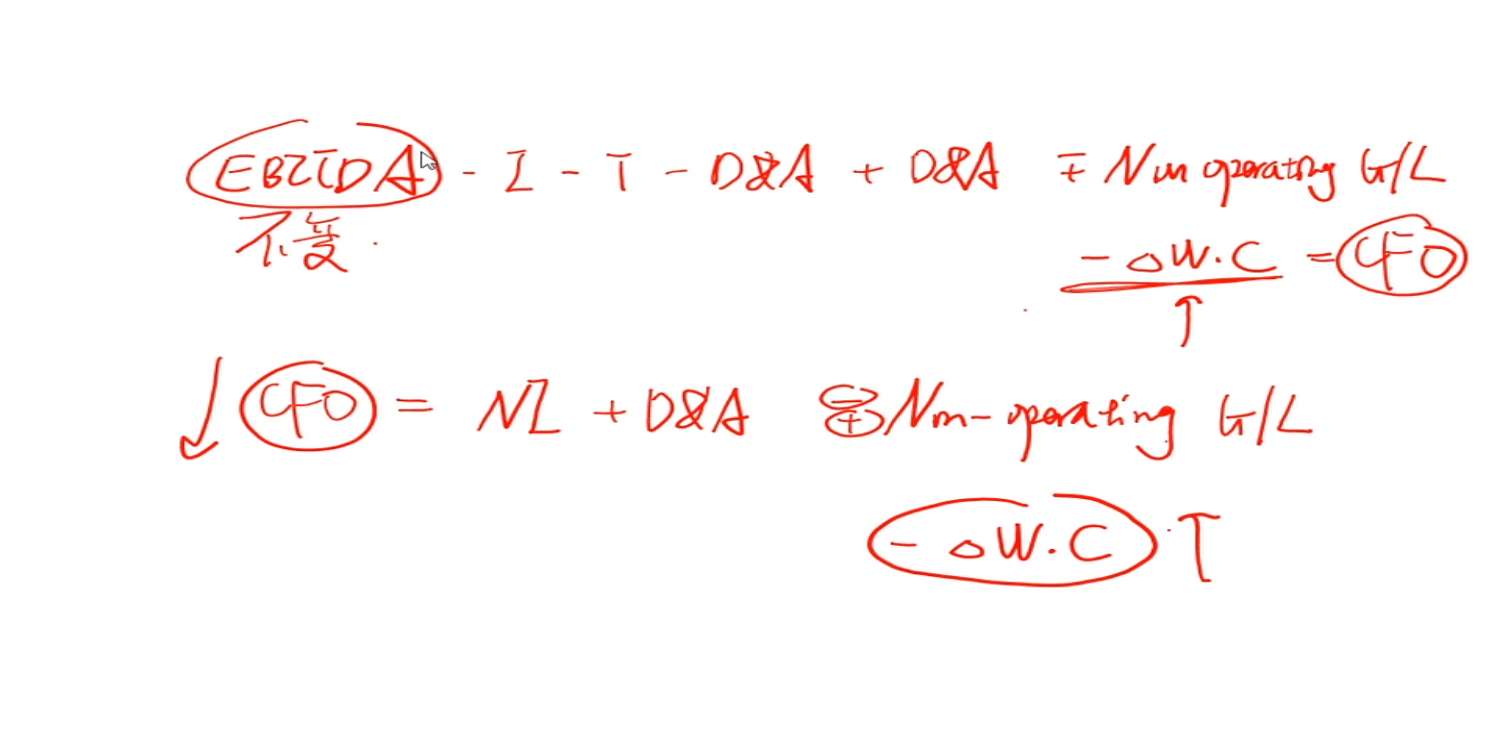 EBITDA - I - T - D&A + D&A ∓ Non operating G/L
不变
- △W.C = CFO
↑
↓ CFO = NI + D&A ∓ Non-operating G/L
- △W.C ↑